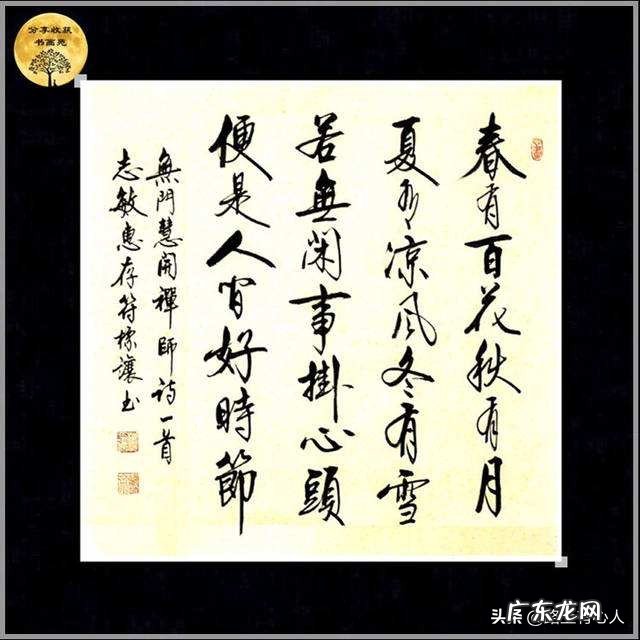 分享收获
书画苑
春有百花秋有月
夏有凉风冬有雪
若無閑事掛心頭
便是人间好時節
無門慧開禪師诗一首
志敏惠存符讓书
头条
广东龙网
心人